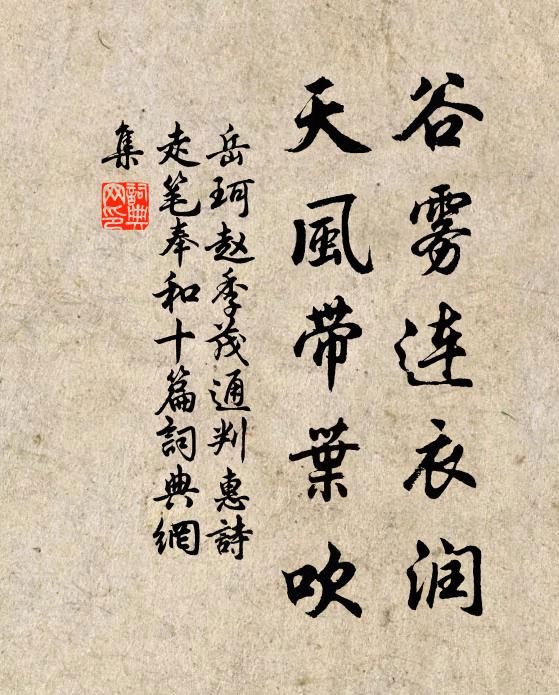 谷雾连衣润
天風带葉吹
岳珂赵季茂通判惠詩
走笔奉和十篇詞典網
集
詞典
网印